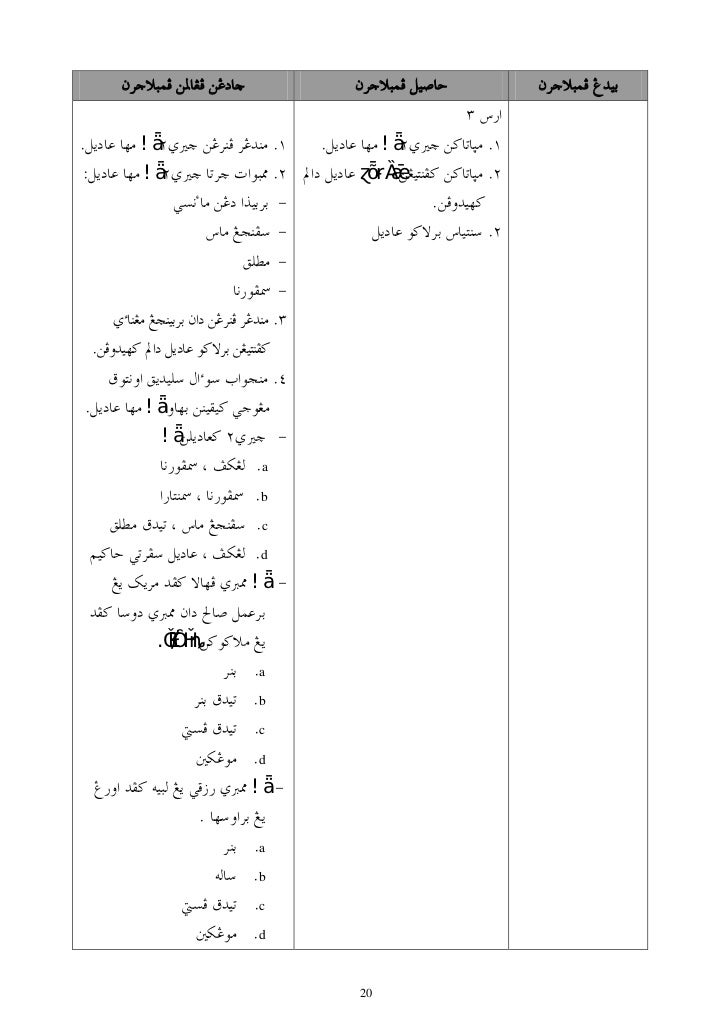 بيدڠ ڤمبلاجرن
حاصيل ڤمبلاجرن
چادڠن ڤڠالمن ڤمبلاجرن
ارس ٣
١. مڽاتاكن چيري ! مها عاديل.
٢. مڽاتاكن كڤنتيڠن عاديل دالم
كهيدوڤن.
٢. سنتياس برلاكو عاديل
١. مندڠر ڤنرڠن چيري ! مها عاديل.
٢. ممبوات چرتا چيري ! مها عاديل:
– بربيذا دڠن ماءنسي
– سڤنجڠ ماس
– مطلق
– سمڤورنا
٣. مندڠر ڤنرڠن دان بربينچڠ مڠناءي
كڤنتيڠن برلاكو عاديل دالم كهيدوڤن.
٤. منجواب سوءال سليديق اونتوق
مڠوجي كيقينن بهاو ! مها عاديل.
– چيري٢ كعاديلن !
a. لڠكڤ ، سمڤورنا
b. سمڤورنا ، سمنتارا
c. سڤنجڠ ماس ، تيدق مطلق
d. لڠكڤ ، عاديل سڤرتي حاكيم
– ! ممبري ڤهالا كڤد مريک يڠ
برعمل صالح دان ممبري دوسا كڤد
يڠ ملاكوكن .
a. بنر
b. تيدق بنر
c. تيدق ڤستي
d. موڠكين
– ! ممبري رزقي يڠ لبيه كڤد اورڠ
يڠ براوسها .
a. بنر
b. ساله
c. تيدق ڤستي
d. موڠكين
20